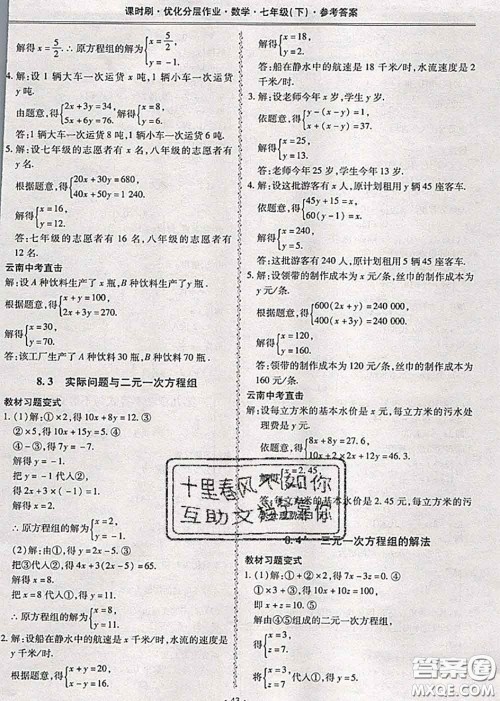 课时刷·优化分层作业·数学·七年级(下)·参考答案
解得{x=5/2, y=5/2. ∴原方程组的解为{x=5/2, y=5/2.
4. 解:设1辆大车一次运货x吨,1辆小车一次运货y吨.
由题意,得{2x+3y=34, 5x+6y=76. 解得{x=8, y=6.
答:1辆大车一次运货8吨,1辆小车一次运货6吨.
5. 解:设七年级的志愿者有x名,八年级的志愿者有y名.
根据题意,得{20x+30y=680, 40x+50y=1 240.
解得{x=16, y=12.
答:七年级的志愿者有16名,八年级的志愿者有
12名.
云南中考直击
解:设A种饮料生产了x瓶,B种饮料生产了y瓶.
根据题意,得{x+y=100, 2x+3y=270.
解得{x=30, y=70.
答:该工厂生产了A种饮料30瓶,B种饮料70瓶.
8.3 实际问题与二元一次方程组
教材习题变式
1. (1)解:①×2,得10x+8y=12. ③
②×5,得10x+15y=5. ④
④-③,得7y=-7.
解得y=-1.
把y=-1代入②,得
2x+3×(-1)=1.
解得x=2.
∴原方程组的解为{x=2, y=-1.
把③代入②,得
4x+120-5x=120.
解得x=0.
把x=0代入③,得y=24.
∴原方程组的解为{x=0, y=24.
2. 解:设船在静水中的航速是x千米/时,水流的速度是
y千米/时.
根据题意,得{x+y=20, x-y=16.
解得{x=18, y=2.
答:船在静水中的航速是18千米/时,水流速度是2
千米/时.
3. 解:设老师今年x岁,学生y岁.
依题意,得{y-(x-y)=1, x+(x-y)=37.
解得{x=25, y=13.
答:老师今年25岁,学生今年13岁.
4. 解:设这批游客有x人,原计划租用y辆45座客车.
依题意,得{45y+15=x, 60(y-1)=x.
解得{x=240, y=5.
答:这批游客有240人,原计划租用5辆45座客车.
5. 解:设领带的制作成本为x元/条,丝巾的制作成本为
y元/条.
根据题意,得{600(2x+y)=240 000, 400(x+2y)=240 000.
答:领带的制作成本为120元/条,丝巾的制作成本为
160元/条.
云南中考直击
解:设每立方米的基本水价是x元,每立方米的污水处
理费为y元.
依题意,得
解得{x=2.45,
答:每立方米的基本水价是2.45元,每立方米的污
十里春风不如你
8.4 三元一次方程组的解法
教材习题变式
1. (1)解:①×3-②,得7x-3z=0. ④
①+③,得10x+10z=100,
即x+z=10. ⑤
解由④⑤组成的二元一次方程组
得{x=3, z=7.
将{x=3, z=7.代入①,得y=5.
· 43 ·
答案圈
MXQE.COM